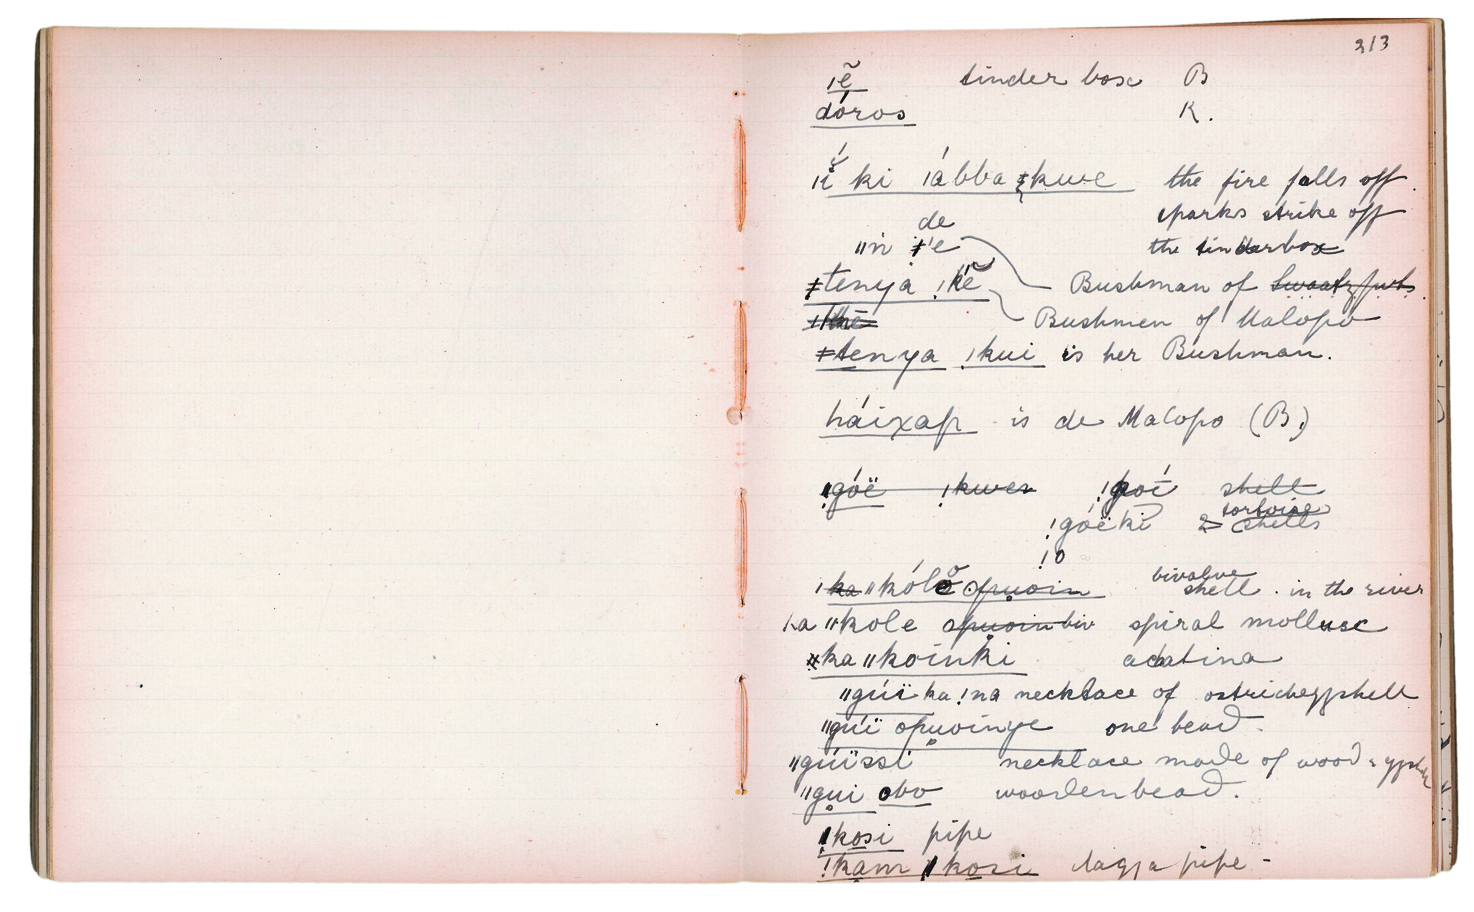 213
ǀẽ́ tinder box B
dóros K.
ǀĭ́ ki ǀábba ǂkwe the fire falls off
sparks strike off
de
ǁn ǂ'e the tinderbox
ǂtenya ǃkẽ Bushman of
Bushmen of Malopo
ǂtenya ǃkui is her Bushman.
háixap is de Malopo (B.)
ǃgóë ǃkwer ǃgoí shell
tortoise
ǃgóëki 2 shells
ǃo
bivalve
ǃka ǁkólo opuoin shell in the river
ka ǁkole opuoin biv spiral mollusc
ǂka ǁkoinki acatina
ǁgúï ka ǃna necklace of ostricheggshell
ǁgúï opuoinye one bead.
ǁgúïssi necklace made of wood
ǁgui obo wooden bead.
ǀkosi pipe
ǃkam ǀkosi dagga pipe -